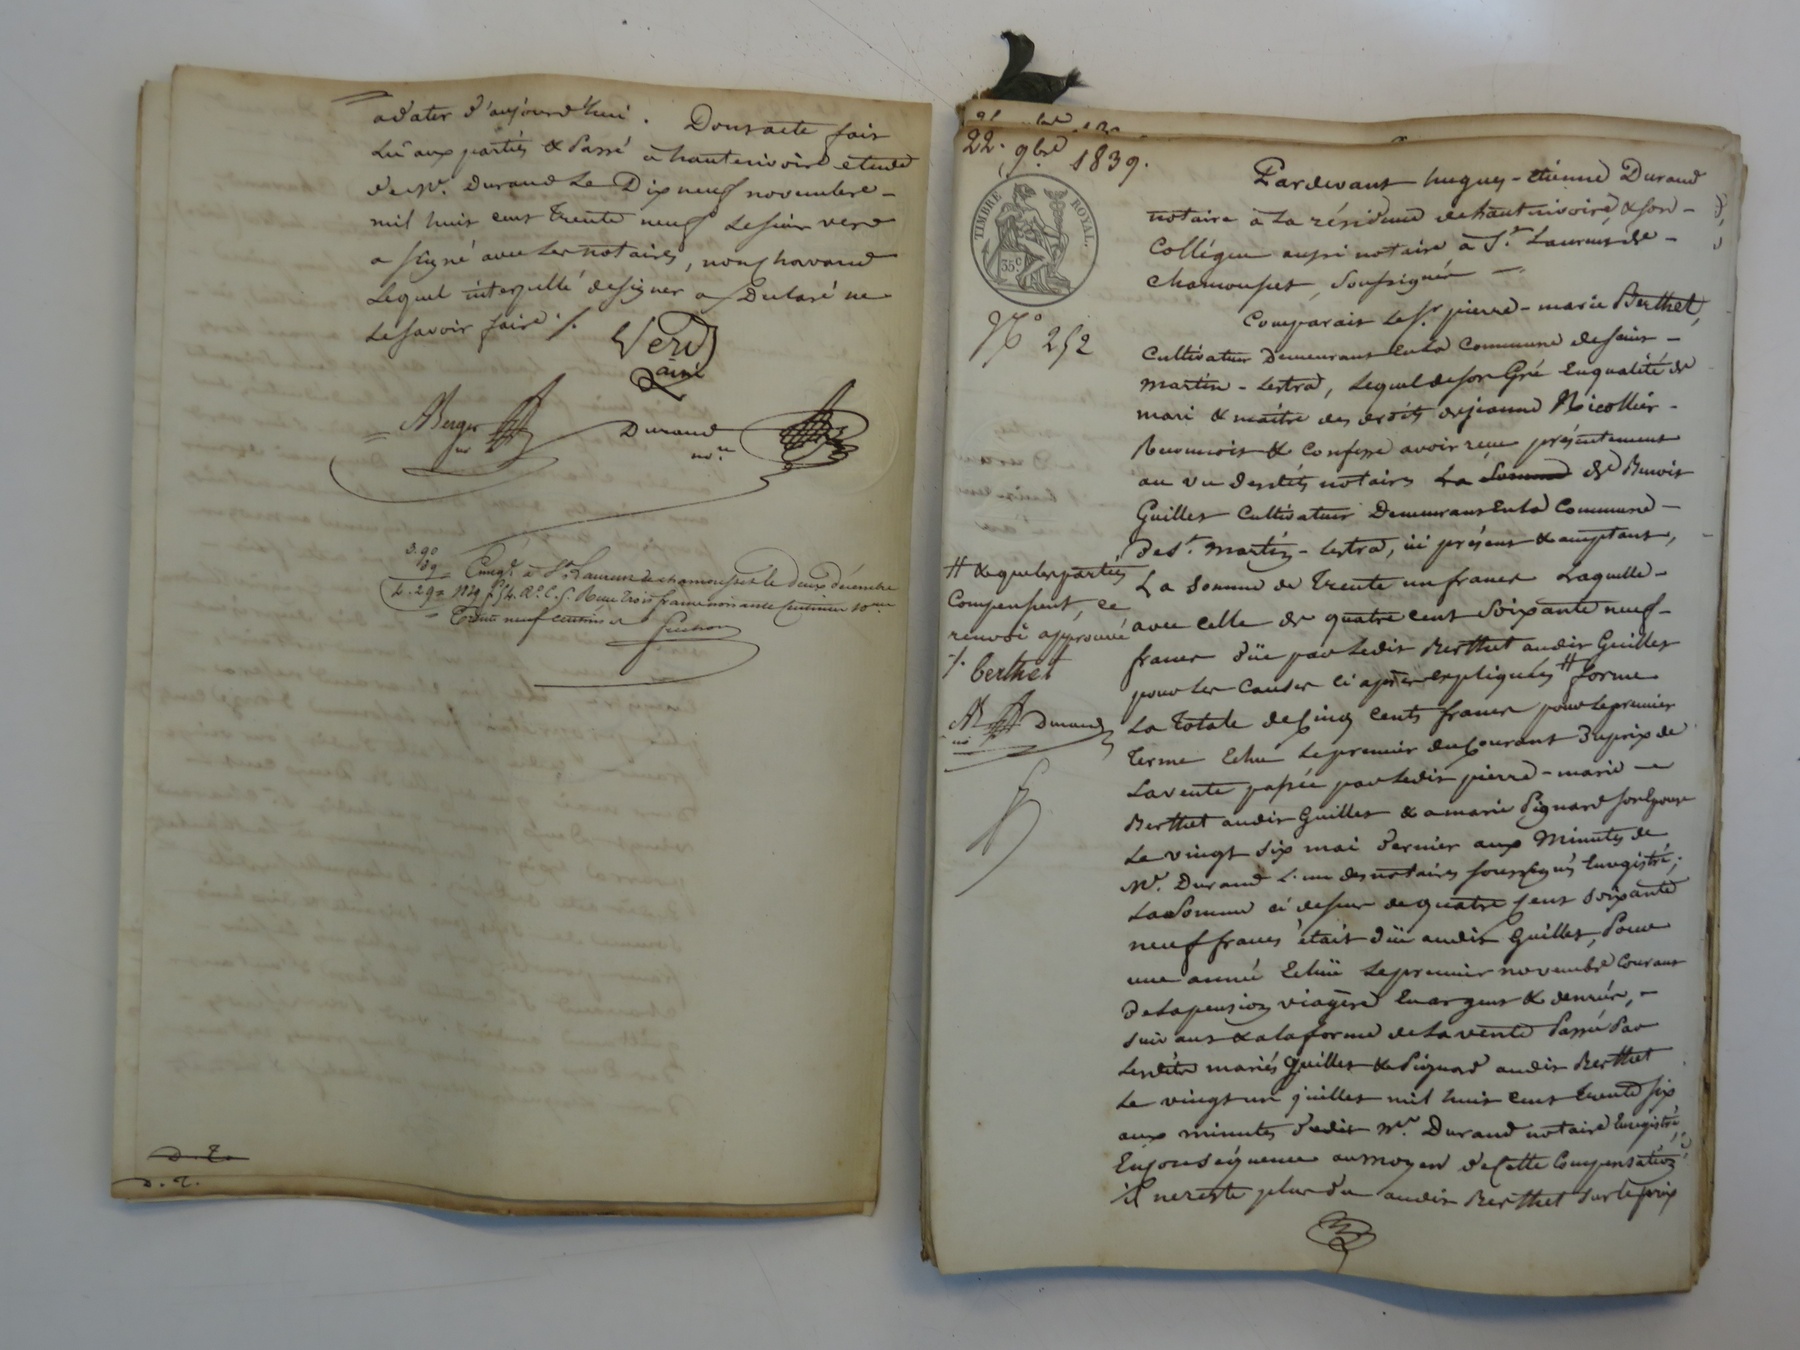 adater d'aujourd'hui. Dont acte fait
Lu aux parties & Passé à hauterivoire étude
de Me. Durand Le Dix neuf novembre –
mil huit cent Trente neuf Le sieur Verd
a signé avec Les notaires, non Chavand
Lequel interpellé designer a Déclaré ne
Le savoir faire ./.
Verd
ainé
Berger
nre
Durand
nore
3. 90
39
4. 29
Enregé à St. Laurent de chamousset le deux décembre
1839 fo 54. Ro C. 5. Reçu trois francs
Trente neuf centimes
22. 9bre 1839.
TIMBRE ROYAL.
35c
No 252
Pardevant hugues-étienne Durand
notaire à La résidence de hauterivoire & son –
Collégue aussi notaire à St. Laurent de –
chamousset, soussignés –
Comparait Le Sr. pierre-marie Berthet,
Cultivateur Demeurant En La Commune de saint –
martin-Lestrad, Lequel de son Gré En qualité de
mari & maitre des droits de jeanne Nicollier –
Reconnoit & Confesse avoir reçu présentement
au vu desdits notaires La Somme de Benoit
Guillet Cultivateur Demeurant En La Commune –
De St. martin-Lestrad, ici présent & acceptant,
La somme de Trente un francs Laquelle –
avec celle de quatre cent Soixante neuf –
francs düe par Ledit Berthet audit Guillet
pour Les Causes ci après expliquées # forme
La Totale de Cinq cents francs pour Le premier
Terme Echu Le premier du Courant Du prix de
La vente passée par Ledit pierre-marie –
Berthet audit Guillet & a marie Pignard son Epouse
Le vingt six mai dernier aux Minutes de
Me. Durand L'un des notaires soussignés Enregistré;
La Somme ci dessus de quatre cent Soixante
neuf francs était düe audit Guillet, Pour
une année Echüe Le premier novembre Courant
De La pension viagère En argent & denrées, –
suivant & a la forme de La vente Passée Par
Lesdits mariés Guillet & Pignard audit Berthet
Le vingt un juillet mil huit cent trente six
aux minutes dudit Me. Durand notaire Enregistrée,
En Conséquence au moyen de Cette Compensation
il ne reste plus du audit Berthet sur le prix
# & que les parties
Compensent, ce
renvoi approuvé
./. berthet
Durand
D. T.
D. T.